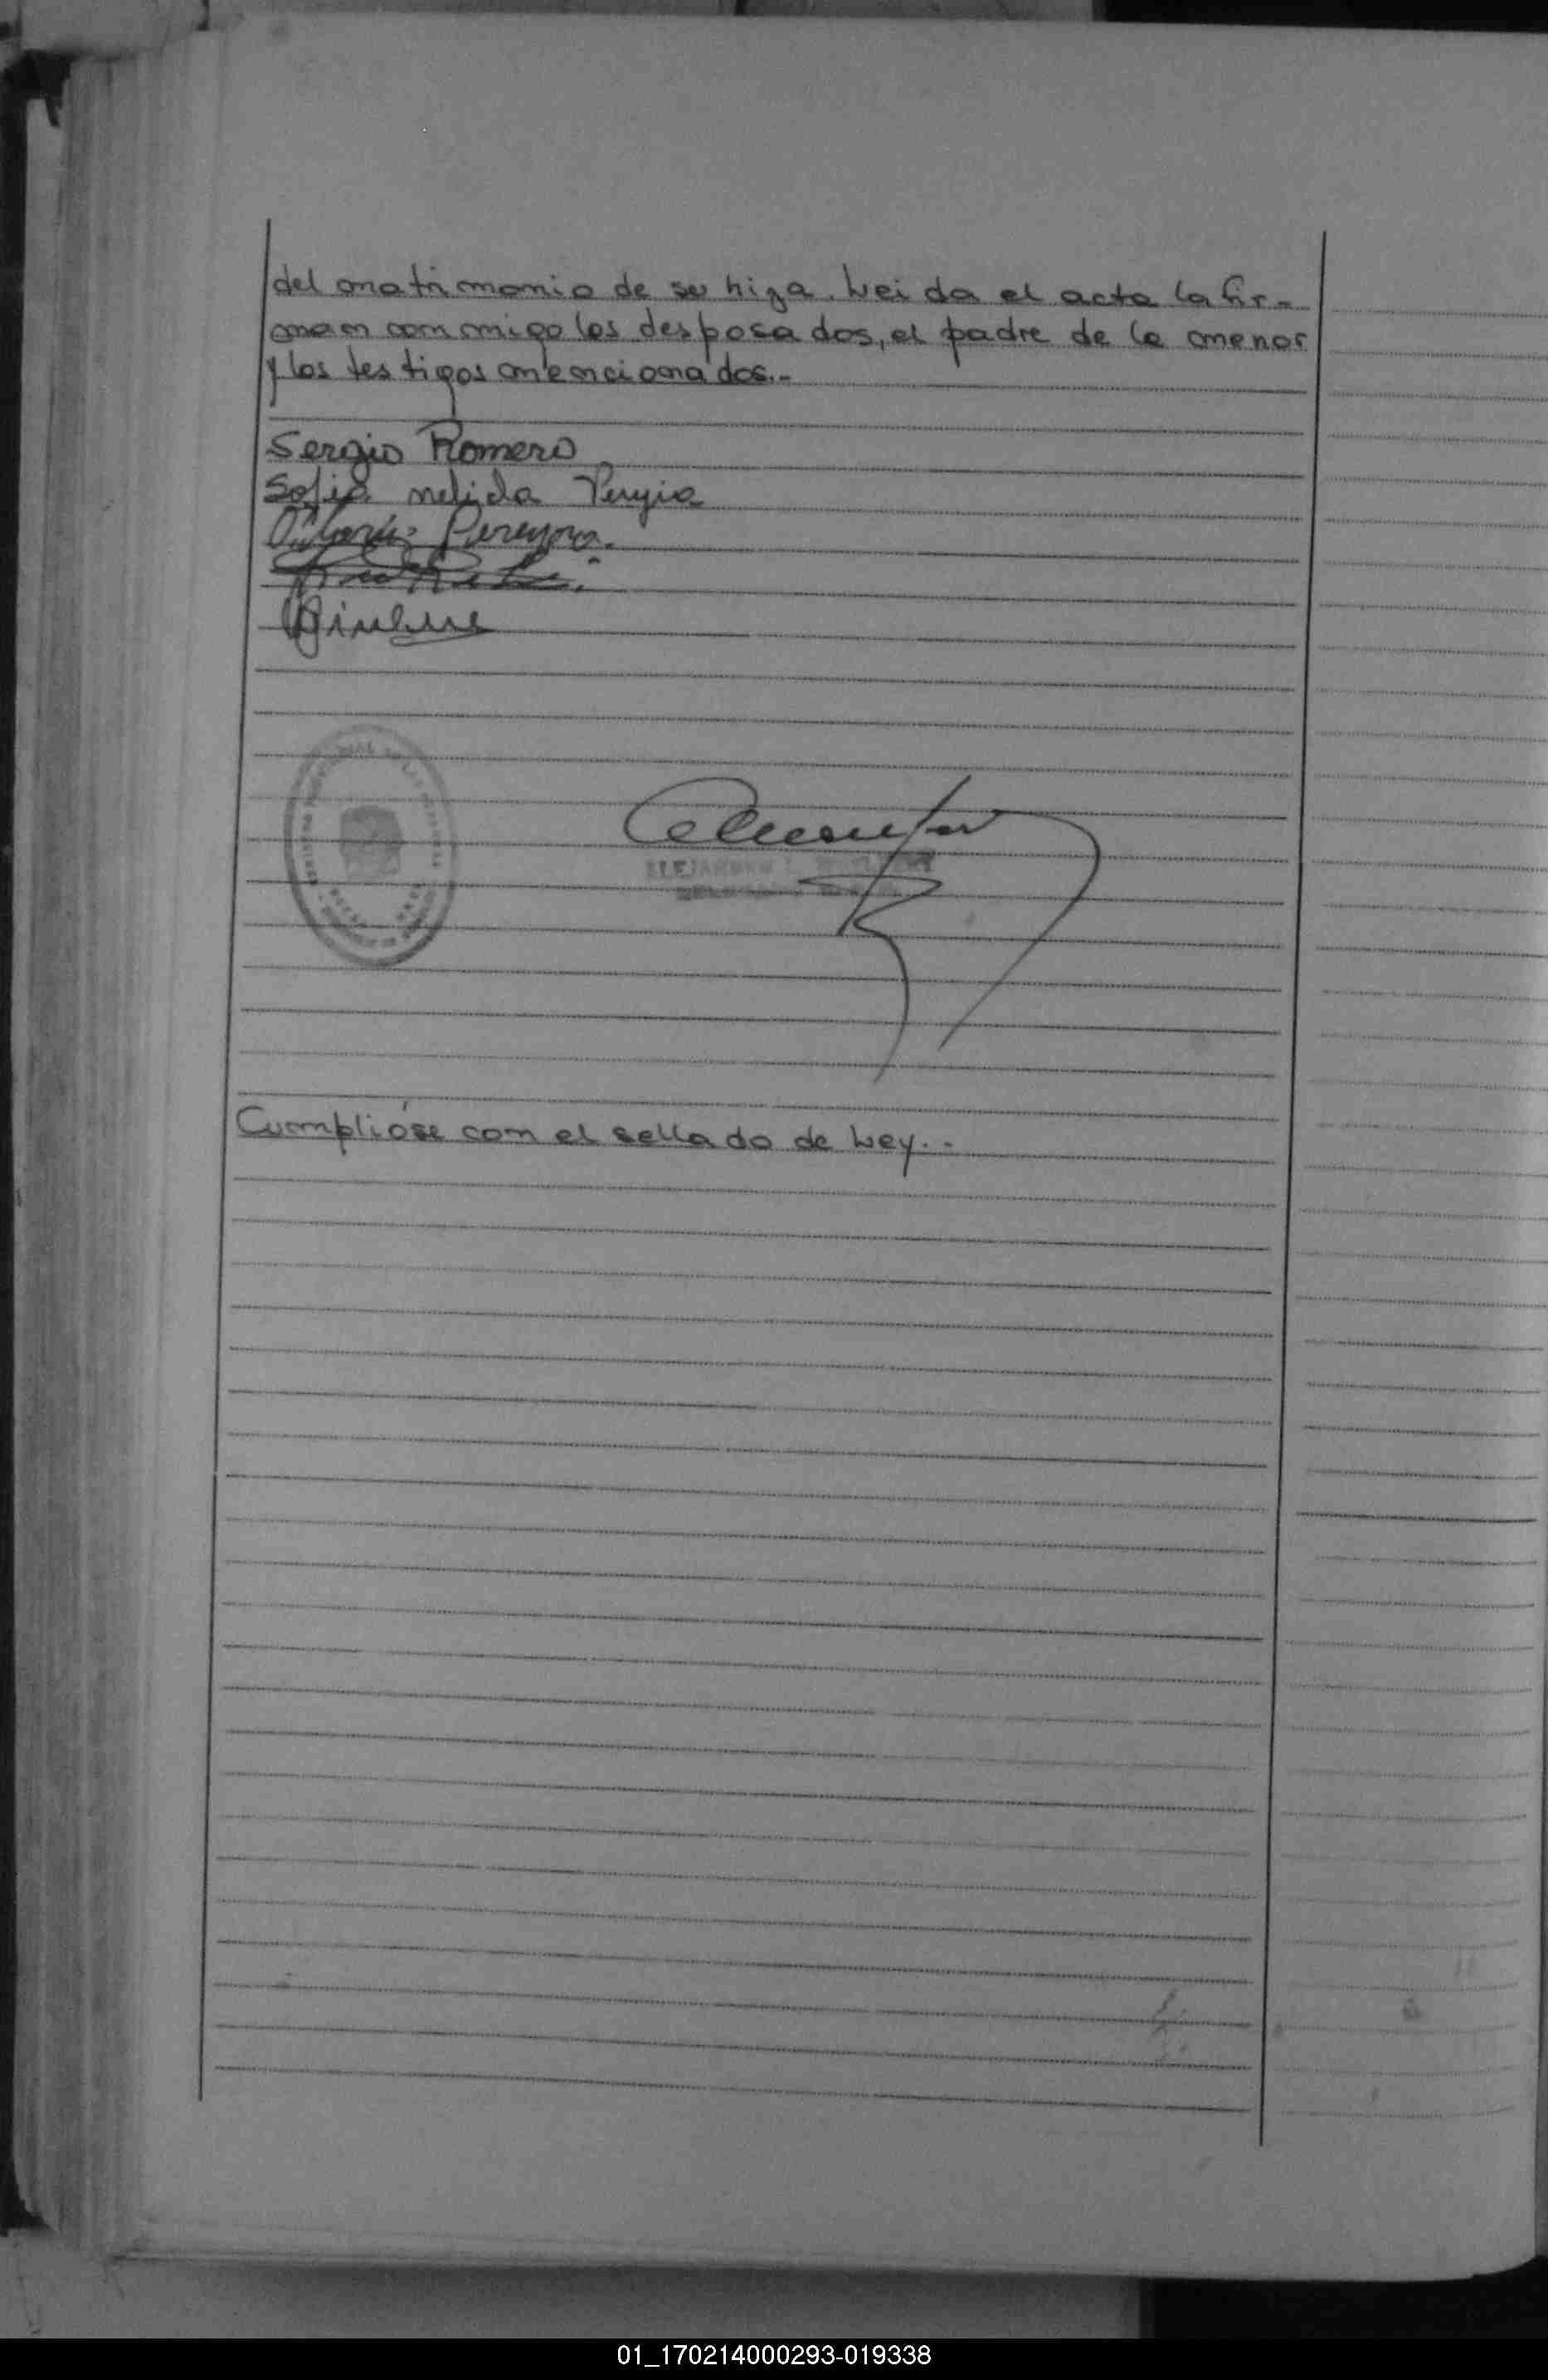 del matrimonio de su hija. Leida el acta la fir-
man conmigo los desposados, el padre de la menor
y los testigos mencionados.-
Sergio Romero
Sofia nelida
Pereyra.
ALEJANDRO
Cumplióse con el sellado de Ley..-
01_170214000293-019338